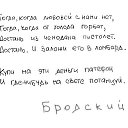 Тогда, когда любовей с нами нет,
Тогда, когда от холода горбат,
Достань из чемодана пистолет,
Достань и заложи его в ломбард.
Купи на эти деньги патефон
И где-нибудь на свете потанцуй.
Бродский